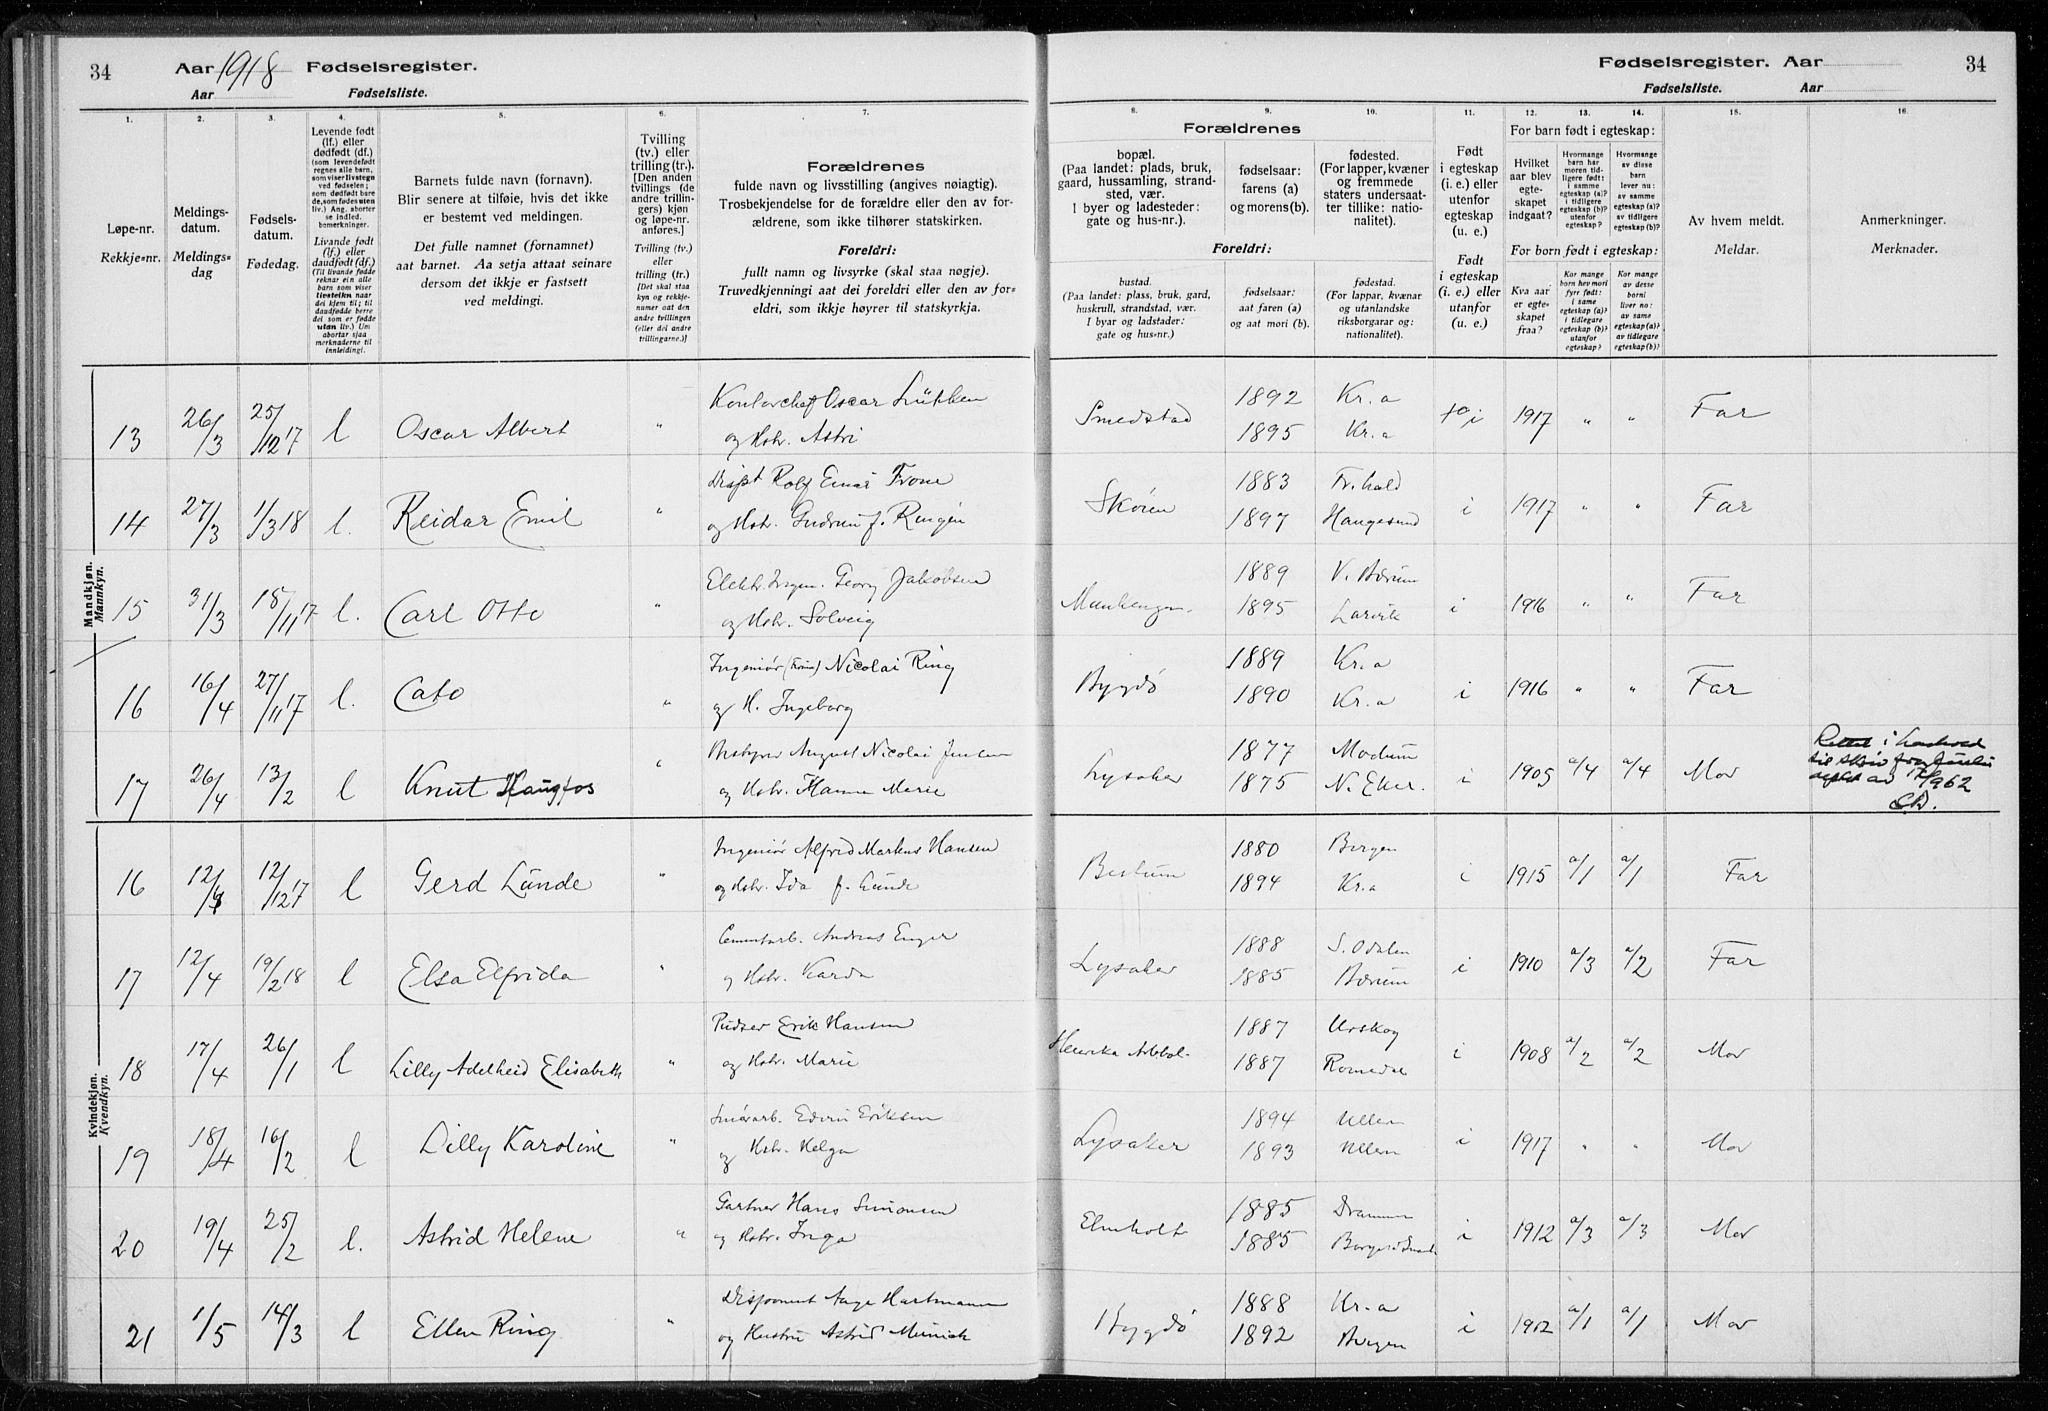 34
Aar 1918 Fødselsregister.
Aar Fødselsliste.
Fødselsregister. Aar
34
Fødselsliste. Aar
1.
Løpe-nr.
Rekkje=nr.
2.
Meldings-
datum.
Meldings=
dag
3.
Fødsels-
datum.
Fødedag.
4.
Levende født
(lf.) eller
dødfødt (df.)
(som levendefødt
regnes alle barn,
som viser livstegn
ved fødselen;
som dødfødt bare
de, som fødes uten
liv.) Ang. aborter
se indled.
bemerkninger.
Livande født
(lf.) eller
daudfødt (df.)
(Til livande fødde
reknar ein alle
barn som viser
livsteikn naar
dei kjem til; til
daudfødde berre
dei som er fødde
utan liv.) Um
abortar sjaa
merknaderne til
innleidingi.
5.
Barnets fulde navn (fornavn).
Blir senere at tilføie, hvis det ikke
er bestemt ved meldingen.
Det fulle namnet (fornamnet)
aat barnet. Aa setja attaat seinare
dersom det ikkje er fastsett
ved meldingi.
6.
Tvilling
(tv.) eller
trilling (tr.).
[Den anden
tvillings (de
andre trillin-
gers) kjøn
og løpe-nr.
anføres.]
Tvilling (tv.)
eller
trilling (tr.)
[Det skal staa
kyn og rekkje-
numer aat den
andre tvillingen
(eller dei andre
trillingarne.)]
7.
Forældrenes
fulde navn og livsstilling (angives nøiagtig).
Trosbekjendelse for de forældre eller den av for-
ældrene, som ikke tilhører statskirken.
Foreldri:
fullt namn og livsyrke (skal staa nøgje).
Truvedkjenningi aat dei foreldri eller den av for=
eldri, som ikkje høyrer til statskyrkja.
Forældrenes
8.
bopæl.
(Paa landet: plads, bruk,
gaard, hussamling, strand-
sted, vær.
I byer og ladesteder:
gate og hus-nr.).
9.
fødselsaar:
farens (a)
og morens (b).
10.
fødested.
(For lapper, kvæner
og fremmede
staters undersaat-
ter tillike: natio-
nalitet).
Foreldri:
bustad.
(Paa landet: plass, bruk, gard,
huskrull, strandstad, vær.
I byar og ladstader:
gate og hus-nr.)
fødselsaar:
aat faren (a)
og aat mori (b).
fødestad.
(For lappar, kvænar
og utanlandske
riksborgarar og:
nationalitet).
11.
Født
i egteskap
(i. e.) eller
utenfor
egteskap
(u. e.)
Født
i egteskap
(i. e.) eller
utanfor
(u. e.)
12. 13. 14.
For barn født i egteskap:
Hvilket
aar blev
egte-
skapet
indgaat?
Hvormange
barn har
moren tid-
ligere født:
i samme
egteskap (a)?
i tidligere
egteskap (b)?
utenfor
egteskap?
Hvormange
av disse
barn
lever nu:
av samme
egteskap (a)?
av tidligere
egteskap (b)?
For born født i egteskap:
Kva aar
er egte-
skapet
fraa?
Kor mange
born hev mori
fyrr født:
i same
egteskap (a)?
i tidlegare
egteskap (b)?
utanfor
egteskap?
Kor mange
av desse
borni
liver no:
av same
egteskap (a)?
av tidlegare
egteskap (b)?
15.
Av hvem meldt.
Meldar.
16.
Anmerkninger.
Merknader.
Mandkjøn.
Mannkyn.
13 26/3 25/12 17 l Oscar Albert " Kontorchef Oscar Lütken Smedstad 1892 Kr.a i 1917 " " Far
og Hstr. Astri 1895 Kr.a
14 27/3 1/3 18 l. Reidar Emil " Disp. Rolf Einar Trone Skøien 1883 Fr.hald i 1917 " " Far
og Hstr. Gudrun f. Ringen 1897 Haugesund
15 31/3 18/11 17 l. Carl Otto " Elektr. Ingen. Georg Jakobsen 1889 V. Bærum i 1916 " " Far
og Hstr. Solveig 1895 Larvik
16 16/4 27/11 17 l. Cato " Ingeniør Nicolai Ring Bygdø 1889 Kr.a i 1916 " " Far
og H. Ingeborg 1890 Kr.a
17 26/4 13/2 l Knut Haugfos " Bestyrer August Nicolai Jensen Lysaker 1877 Modum i 1905 a/4 a/4 Mor Rettet i henhold
og Hstr. Hanna Marie 1875 N. Eker. til skriv fra
av 1962
Kvindekjøn.
Kvendkyn.
16 12/4 12/12 17 l Gerd Lunde " Ingeniør Alfred Markus Hansen Bestum 1880 Bergen i 1915 a/1 a/1 Far
og Hstr. Ida f. Lunde 1894 Kr.a
17 12/4 19/2 18 l Elsa Elfrida " Cementarb. Andreas Enger Lysaker 1888 S. Odalen i 1910 a/3 a/2 Far
og Hstr. Karda 1885 Bærum
18 17/4 26/1 l Lilly Adelheid Elisabeth " Pudser Erik Hansen 1887 Urskog i 1908 a/2 a/2 Mor
og Hstr. Marie 1887 Romedal
19 18/4 16/2 l Lilly Karoline " Edvin Eriksen Lysaker 1894 Ullern i 1917 " " Mor
og Hstr. Helga 1893 Ullern
20 19/4 25/2 l. Astrid Helene " Gartner Hans Simonsen Elmholt 1885 Drammen i 1912 a/3 a/3 Mor
og Hstr. Inga 1885
21 1/5 14/3 l Ellen Ring " Disponent Aage Hartmann Bygdø 1888 Kr.a i 1912 a/1 a/1 Mor
og Hustru Astrid Munich 1892 Bergen